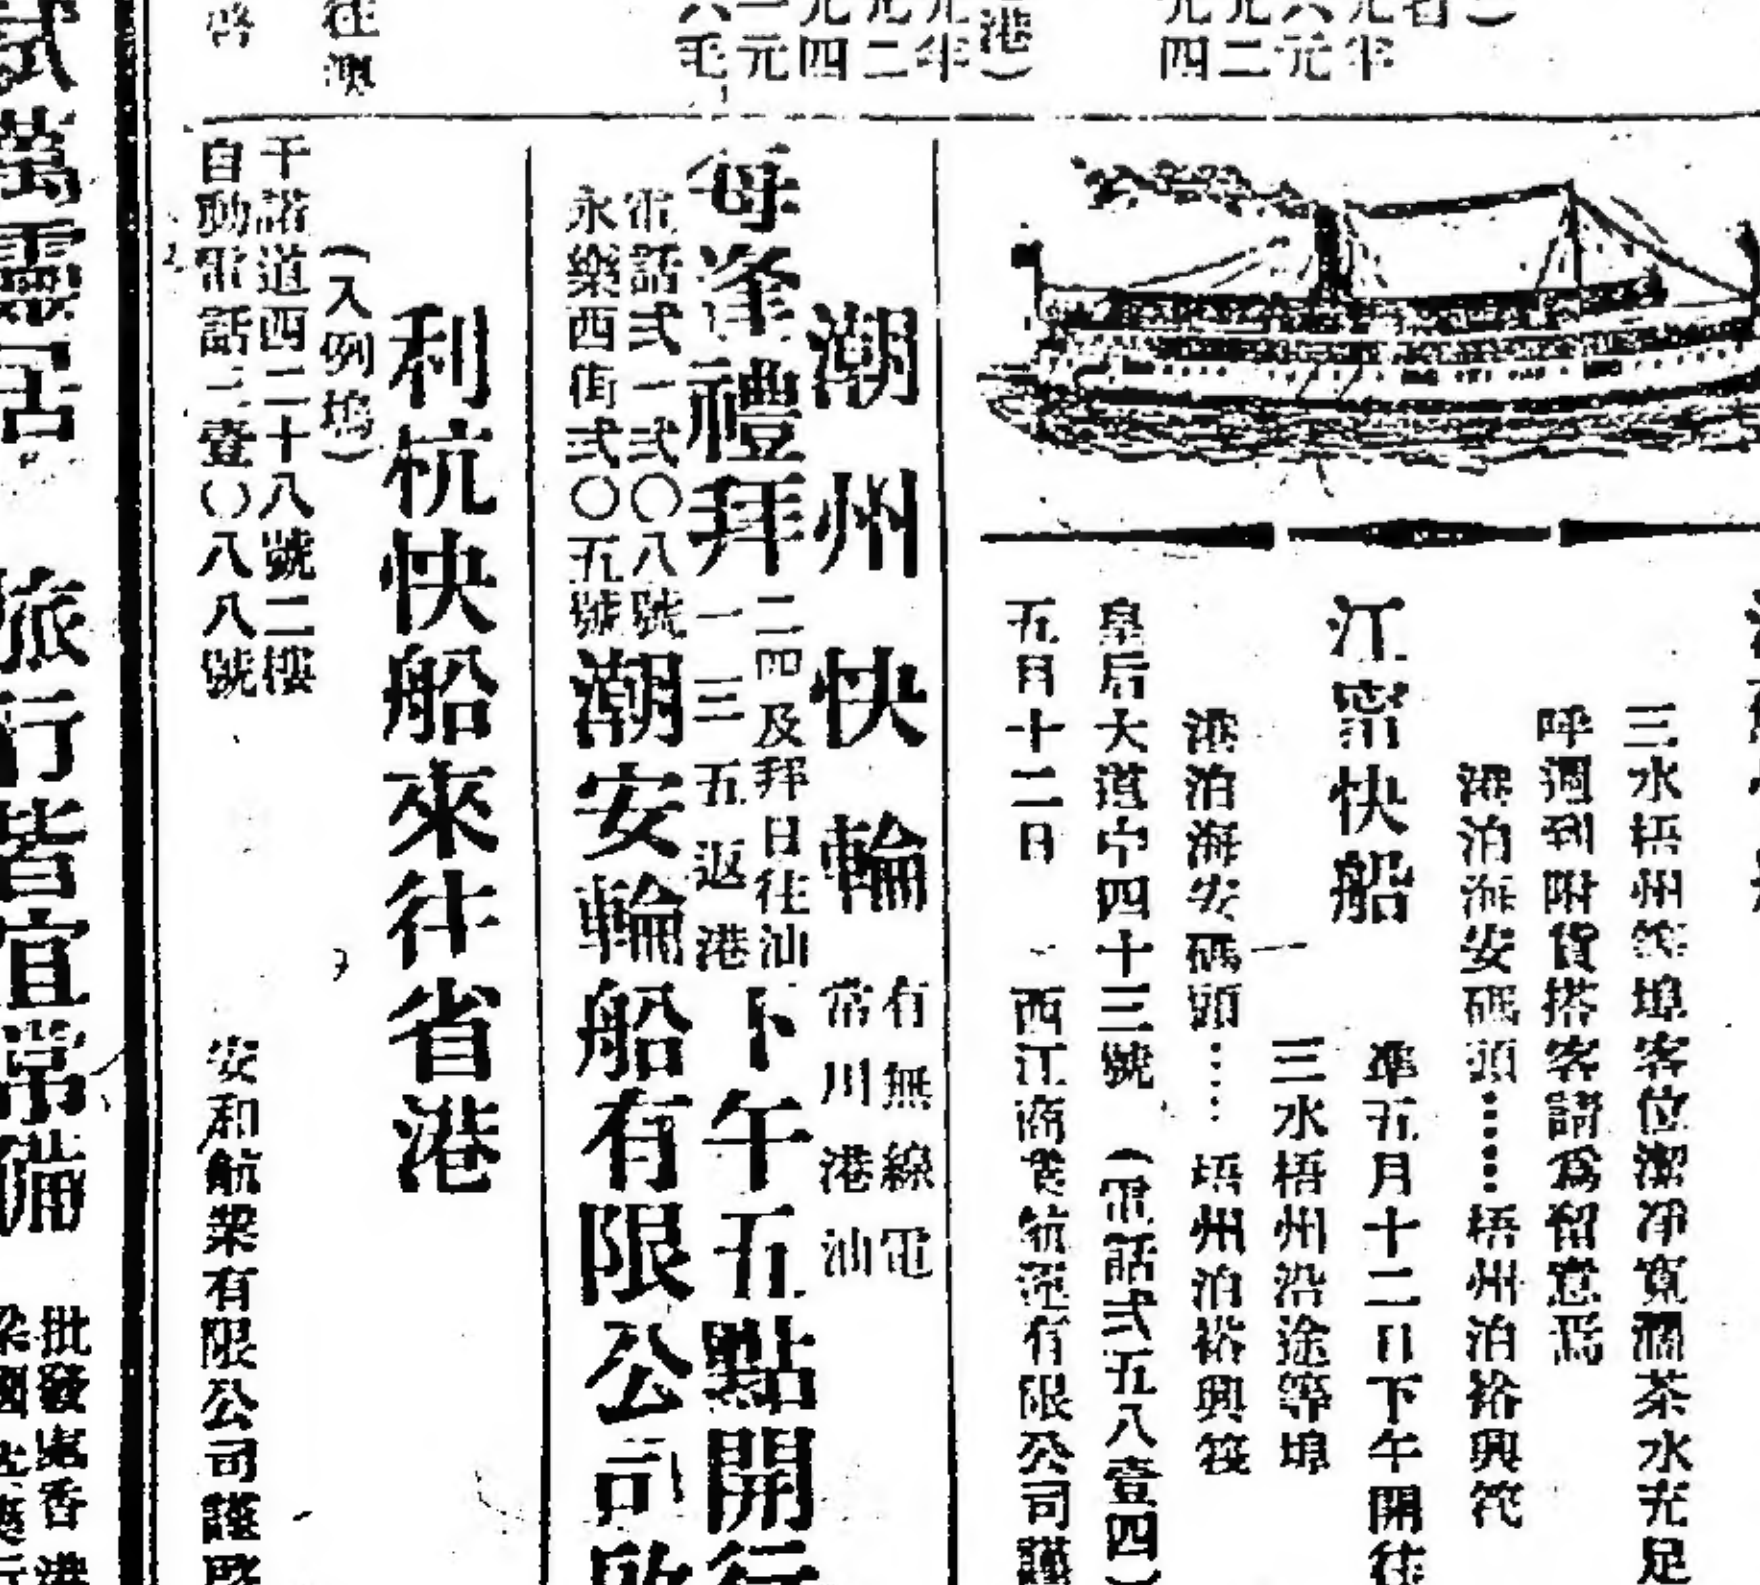 三水梧州等埠客位潔淨寬濶茶水充足
呼週到附貨搭客請爲留意焉
港泊海安碼頭……梧州泊裕興筏
江寗快船
準五月十二日下午開往
三水梧州沿途等埠
港泊海安碼頭……梧州泊裕興筏
皇后大道中四十三號 (電話弍五八壹四)
五月十二日 西江商業航運有限公司謹
潮州快輪
有無線電
常川港汕
每逢禮拜
二四及拜日往汕
一三五返港
下午五點開行
電話弍一弍〇八號
永樂西街弍〇五號
潮安輪船有限公司啟
利杭快船來往省港
(入例塢)
干諾道西二十八號二樓
自動電話二壹〇八八號
安和航業有限公司謹啓
旅行皆宜常備
批發處香港